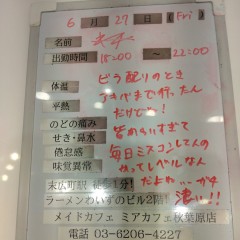 6月27日(Fri)
名前
出勤時間 15:00 ～ 22:00
体温
平熱
のどの痛み
せき・鼻水
倦怠感
味覚異常
ビラ配りのとき
アキバまで行ったん
だけど！
皆めいすぎて
毎日ミスコンしてんの
ってレベルなん
だよね
濃い!!
末広町駅 徒歩1分!
ラーメンわいずのビル2階!
メイドカフェ ミアカフェ秋葉原店
電話 03-6206-4227